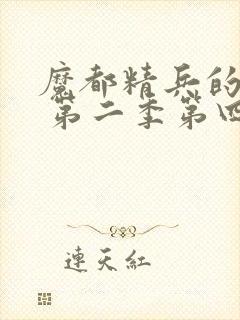 魔都精兵的
第二季第四
連天紅